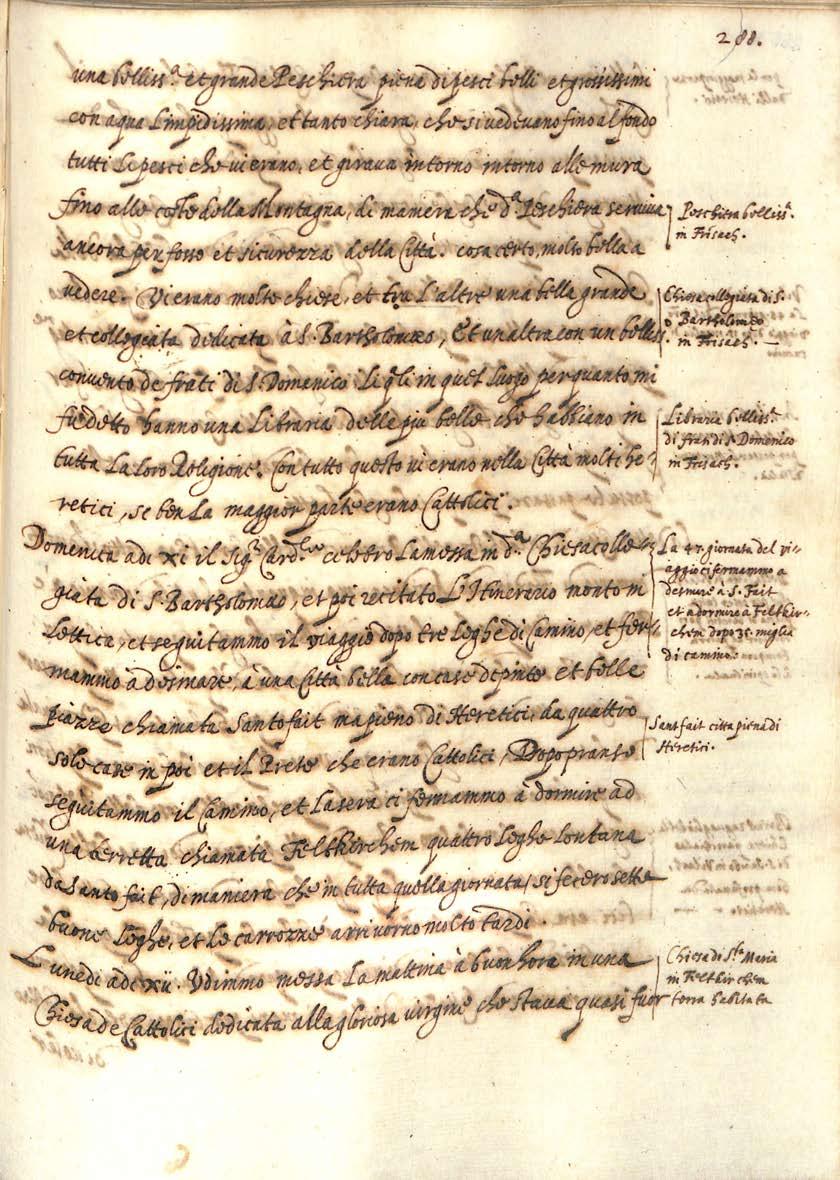 288.
una belliss.ª et grande Peschiera piena di pesci belli et grossissimi
con aqua limpidissima, et tanto chiara, che si vedevano fino al fondo
tutti li pesci che vi erano, et girava intorno intorno alle mura
fino alle coste della Montagna, di maniera che d.ª Peschiera serviva
ancora per fosso et sicurezza della Città. cosa certo, molto bella a
vedere. Vi erano molte chiese, et tra l'altre una bella grande
et collegiata dedicata à S. Bartholomeo, Et un altra con un belliss.
convento de frati di S. Domenico li q.li in quel luogo per quanto mi
fu detto hanno una Libraria delle piu belle che habbiano in
tutta la loro Religione. Con tutto questo vi erano nella Città molti he-
retici, se ben la maggior parte erano Cattolici.
Domenica adi xi il Sig.r Card.le celebro la messa in d.ª Chiesa colle-
giata di S. Bartholomeo, et poi recitato l'Itinerario monto in
lettica, et seguitammo il viaggio dopo tre leghe di Camino, et fer-
mammo à desinare, à una Città bella con case depinte et belle
piazze chiamata Santo fait ma pieno di Heretici, da quattro
sole case in poi et il Prete che erano Cattolici, Dopo pranso
seguitammo il Camino, et la sera ci fermammo à dormire ad
una terretta chiamata Feltkirchem quattro leghe lontana
da Santo fait, di maniera che in tutta quella giornata, si fecero sette
buone leghe, et le carrozze arrivorno molto tardi.
Lunedi adi xii. Vdimmo messa la mattina à buon hora in una
Chiesa de Cattolici dedicata alla gloriosa virgine che stava quasi fuor
Peschiera belliss.ª
in Frisach.
Chiesa collegiata di S.
Bartholomeo
in Frisach.
Libraria belliss.ª
di frati di S. Domenico
in Frisach.
La 47. giornata del vi-
aggio ci fermammo a
desinare à S. Fait
et a dormire à Feltkir-
chem dopo 35. miglia
di camino.
Sant fait citta piena di
Heretici.
Chiesa di S.ta Maria
in Feltkirchem
terra habitata